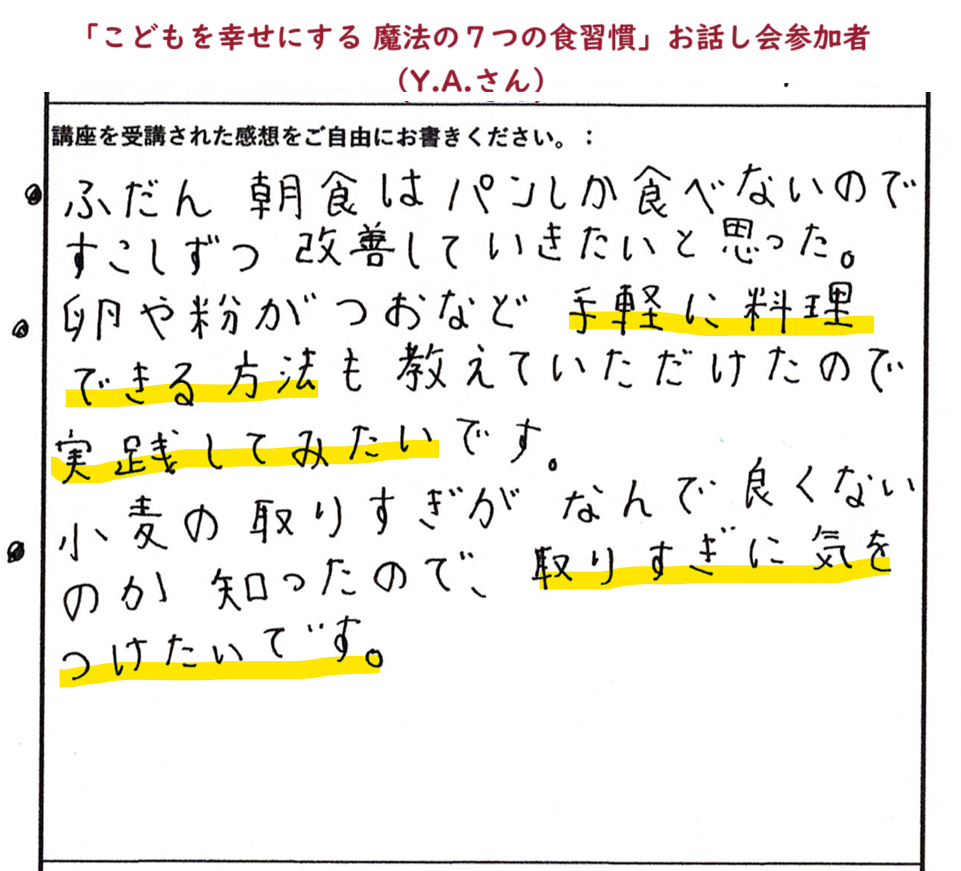 「こどもを幸せにする 魔法の７つの食習慣」お話し会参加者
（Y.A.さん）
講座を受講された感想をご自由にお書きください。：
ふだん 朝食は パンしか食べないので
すこしずつ 改善していきたいと思った。
卵や粉がつおなど 手軽に料理
できる方法も教えていただけたので
実践してみたいです。
小麦の取りすぎが なんで良くない
のか 知ったので、取りすぎに気を
つけたいです。